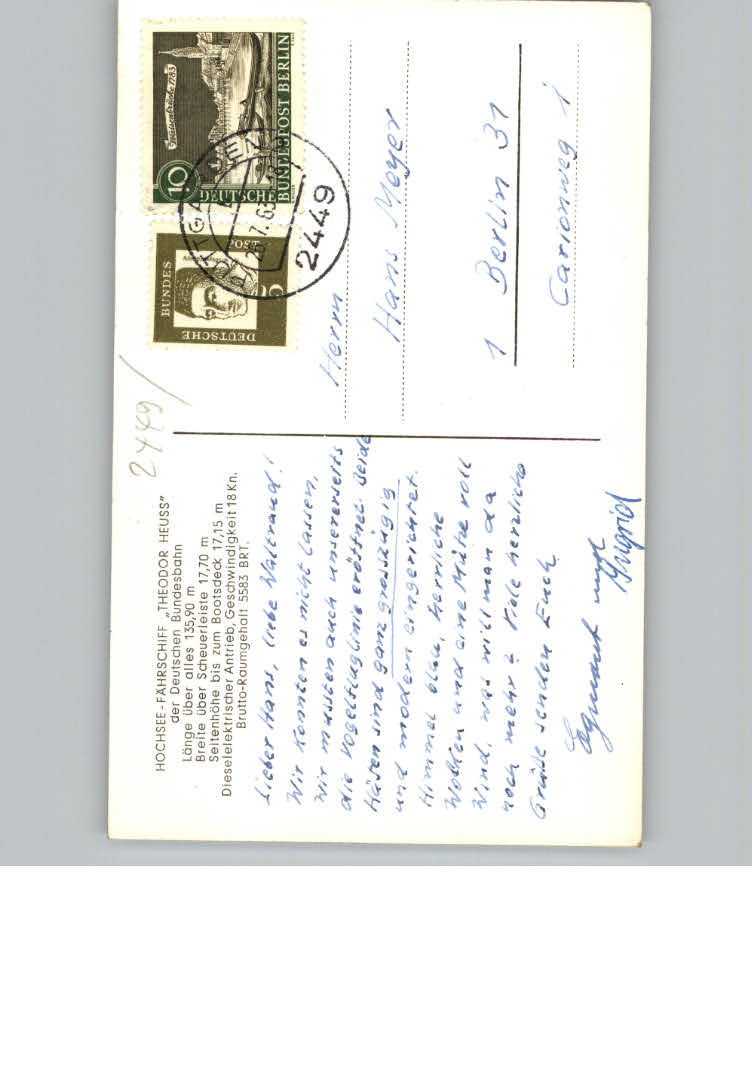 HOCHSEE-FÄHRSCHIFF „THEODOR HEUSS"
der Deutschen Bundesbahn
Länge über alles 135,90 m
Breite über Scheuerleiste 17,70 m
Seitenhöhe bis zum Bootsdeck 17,15 m
Dieselelektrischer Antrieb, Geschwindigkeit 18 Kn.
Brutto-Raumgehalt 5583 BRT.
Lieber Hans, liebe Waltraud!
Wir konnten es nicht lassen,
wir mussten auch unsererseits
die Vogelfluglinie eröffnen. Beide
Häfen sind ganz grosszügig
und modern eingerichtet.
Himmel blau, herrliche
Wolken und eine Mütze voll
Wind, was will man da
noch mehr? Viele herzliche
Grüße senden Euch
Egmont und
Ingrid
2449
Waisenbrücke 1783
10
DEUTSCHE
BUNDESPOST BERLIN
DEUTSCHE
BUNDES
POST
5
26.7.63-18
2449
Herrn
Hans Meyer
1 Berlin 31
Carionweg 1